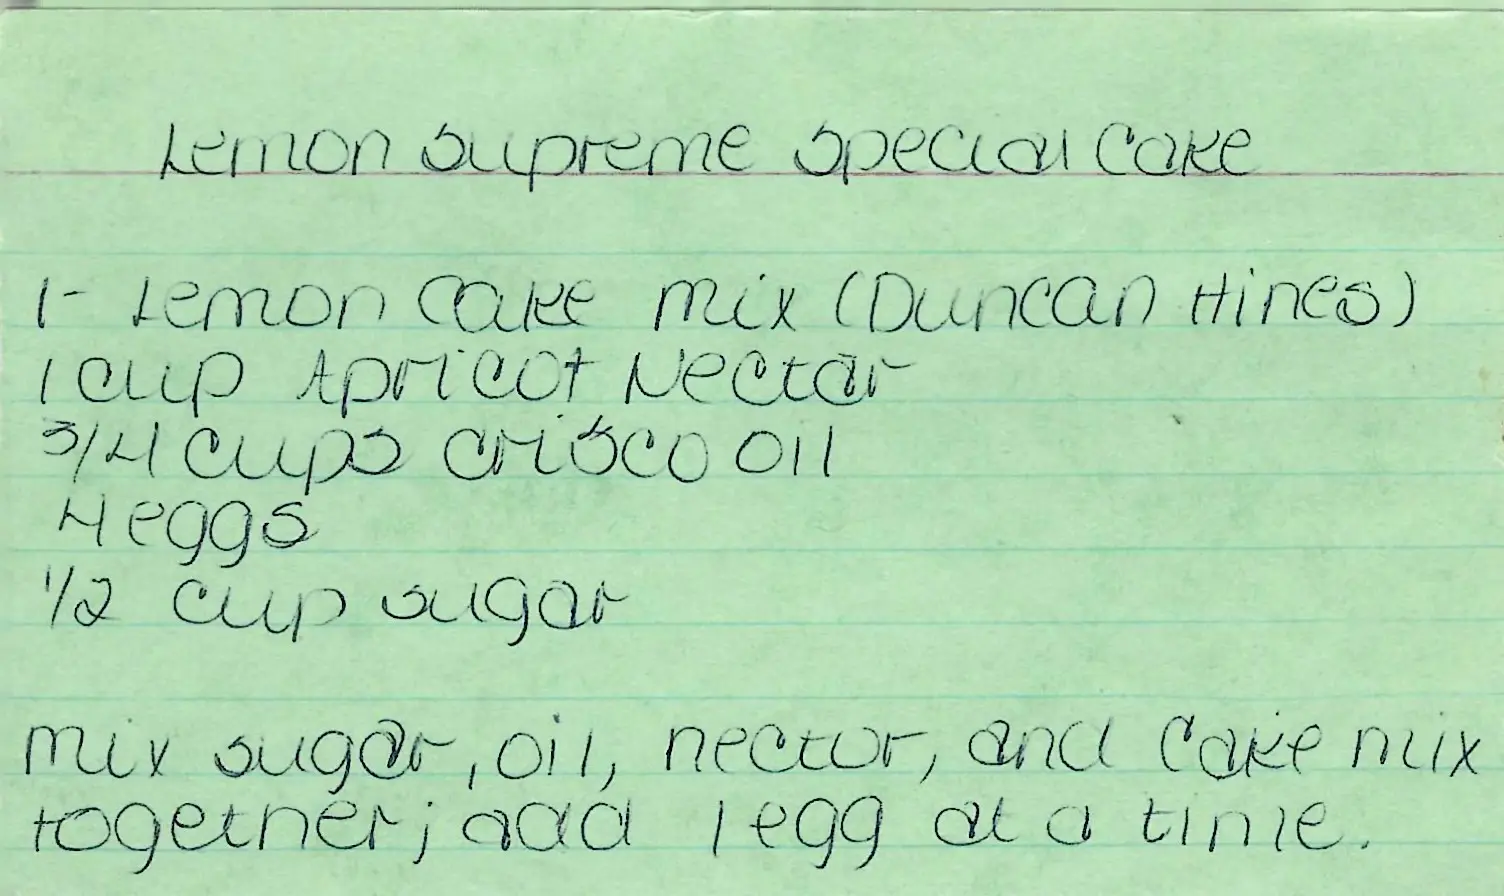 Lemon Supreme Special Cake
1- Lemon Cake mix (Duncan Hines)
1 cup Apricot Nectar
3/4 cups crisco oil
4 eggs
1/2 cup sugar
mix sugar, oil, nectar, and Cake mix
together; add 1 egg at a time.